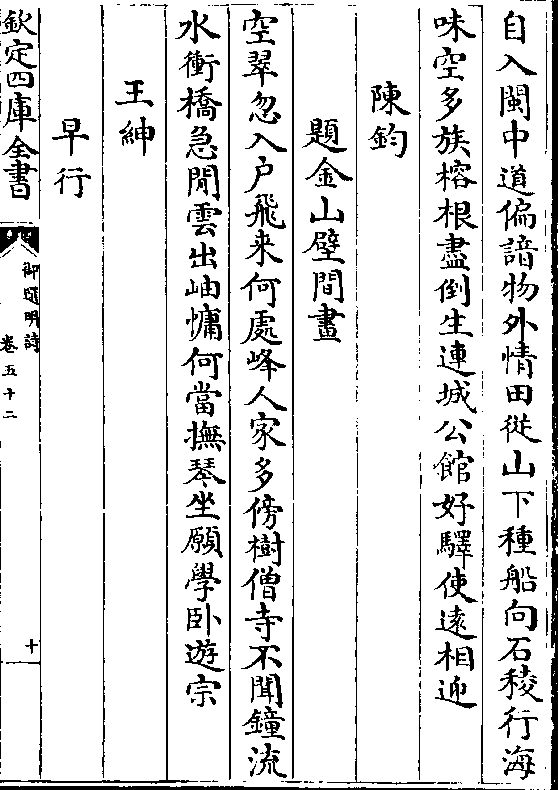 自入閩中道偏諳物外情田從山下種船向石稜行海
味空多族榕根盡倒生連城公館好驛使遠相迎
陳鈞
題金山壁間畫
空翠忽入户飛来何處峰人家多傍樹僧寺不聞鐘流
水衝橋急閒雲出岫慵何當撫琴坐願學卧遊宗
王紳
早行
欽定四庫全書
御選明詩
卷五十二
十